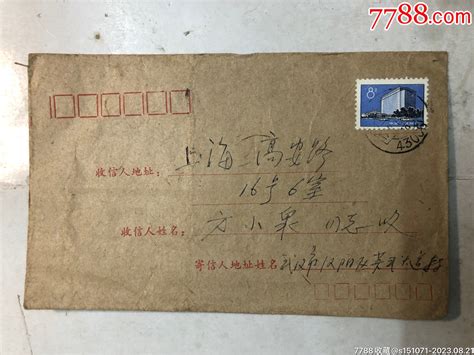 7788.com
8分
收信人地址: 上海 高安路
16号6室
收信人姓名: 方小果 同志收
寄信人地址姓名 武汉市汉阳区
7788收藏@s151071-2023.08.21